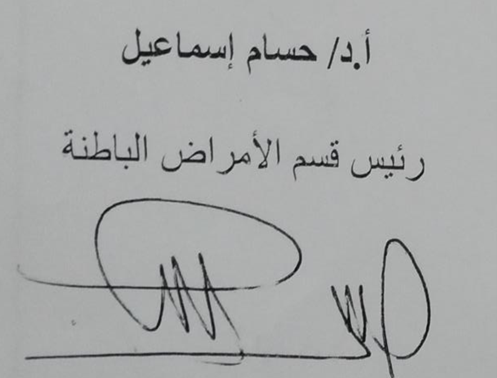 أ.د/ حسام إسماعيل
رئيس قسم الأمراض الباطنة